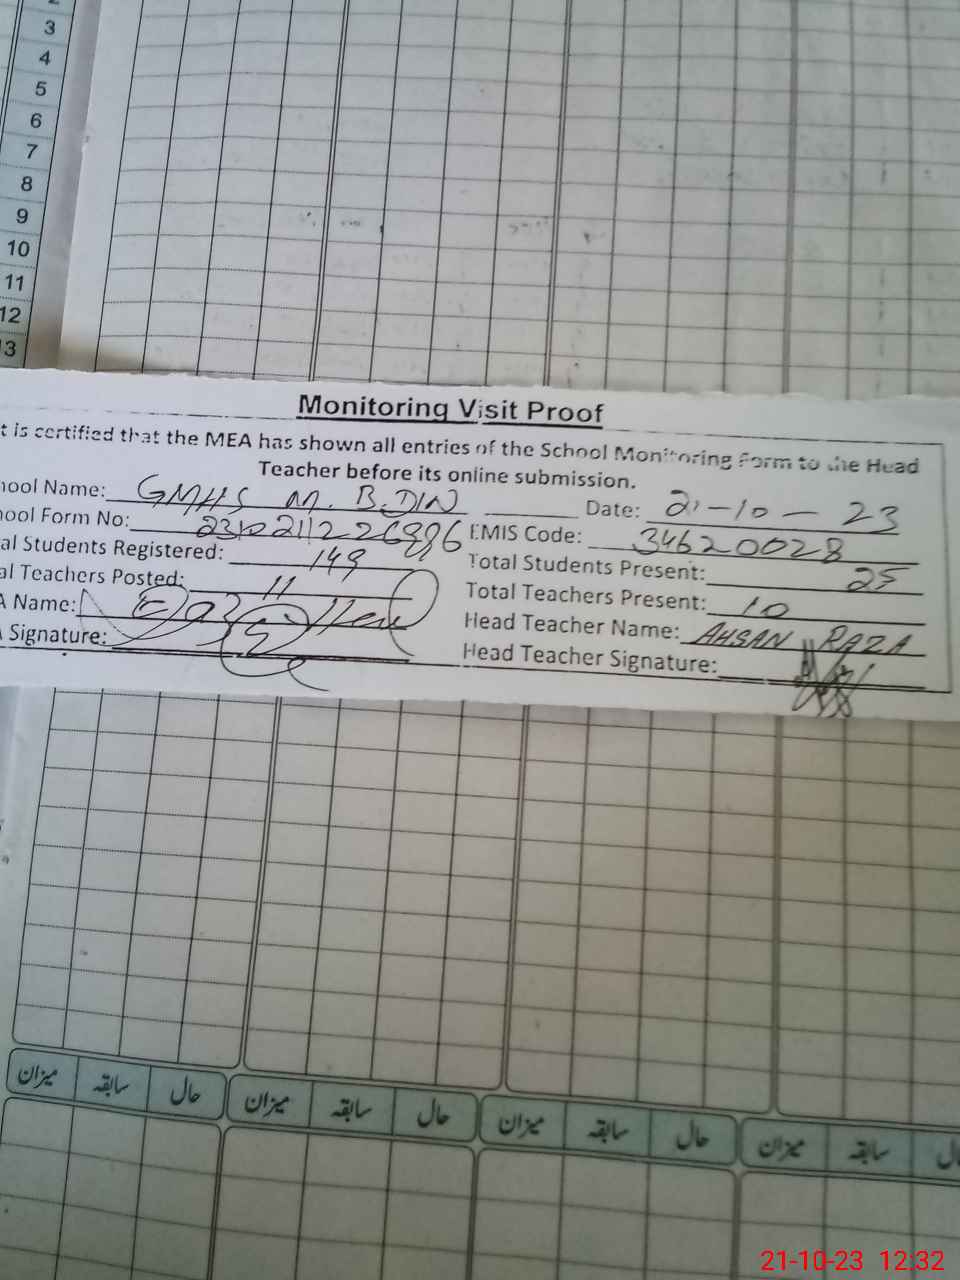 3
4
5
6
7
8
9
10
11
12
13
Monitoring Visit Proof
t is certified that the MEA has shown all entries of the School Monitoring Form to the Head
Teacher before its online submission.
hool Name: GMHS M. B. DIN Date: 21-10-23
hool Form No: EMIS Code: 34620028
al Students Registered: 149 Total Students Present: 25
al Teachers Posted: 11 Total Teachers Present: 10
A Name: Head Teacher Name: AHSAN RAZA
Signature: Head Teacher Signature:
میزان سابقہ حال میزان سابقہ حال میزان سابقہ حال میزان سابقہ
21-10-23 12:32